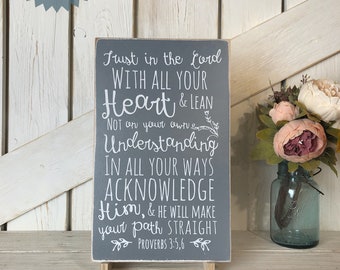 Trust in the Lord
WITH ALL YOUR
Heart & LEAN
NOT ON YOUR OWN
Understanding
IN ALL YOUR WAYS
ACKNOWLEDGE
Him, & HE WILL MAKE
your path STRAIGHT
PROVERBS 3:5,6